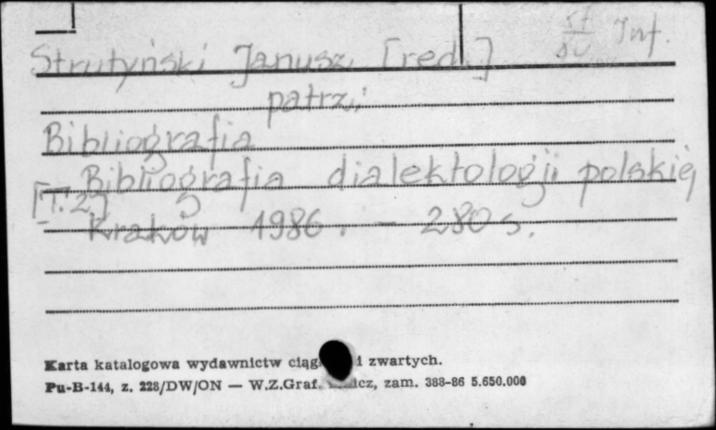 Inf.
Strutyński Janusz [red.]
patrz:
Bibliografia
Bibliografia dialektologii polskiej
[T. 2]
Kraków 1986. - 280 s.
Karta katalogowa wydawnictw i zwartych.
Pu-B-144, z. 228/DW/ON — W.Z.Graf. zam. 388-86 5.650.000